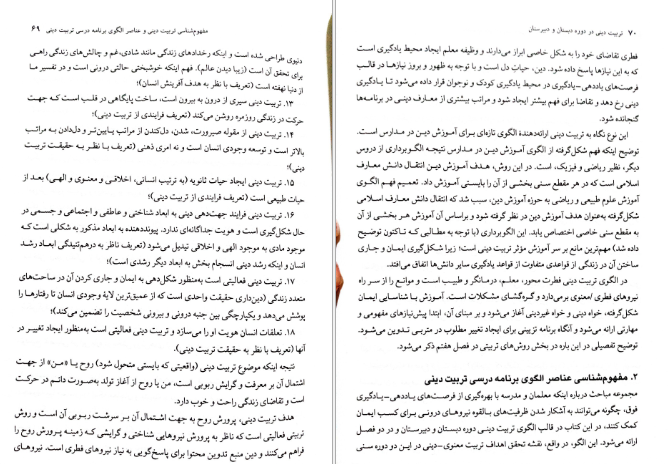 مفهوم‌شناسی تربیت دینی و عناصر الگوی برنامه درسی تربیت دینی / ۶۹
دنیوی طراحی شده است و اینکه رخدادهای زندگی مانند شادی، غم و چالش‌های زندگی راهی
برای تحقق آن است (زیبا دیدن عالم). فهم اینکه خوشبختی حالتی درونی است و در تفسیر ما
از دنیا نهفته است (تعریف با نظر به هدف آفرینش انسان)؛
۱۳. تربیت دینی سیری از درون به بیرون است، ساخت پایگاهی در قلب است که جهت
حرکت در زندگی روزمره روشن می‌کند (تعریف فرایندی از تربیت دینی)؛
۱۴. تربیت دینی از مقوله صیرورت، شدن، دل‌کندن از مراتب پایین‌تر و دل‌دادن به مراتب
بالاتر است و توسعه وجودی انسان است و نه امری ذهنی (تعریف با نظر به حقیقت تربیت
دینی)؛
۱۵. تربیت دینی ایجاد حیات ثانویه (به ترتیب انسانی، اخلاقی و معنوی و الهی) بعد از
حیات طبیعی است (تعریف فرایندی از تربیت دینی)؛
۱۶. تربیت دینی فرایند جهت‌دهی دینی به ابعاد شناختی و عاطفی و اجتماعی و جسمی در
حال شکل‌گیری است و هویت جداگانه‌ای ندارد. پیونددهنده به ابعاد مذکور به شکلی است که
موجود مادی به موجود الهی و اخلاقی تبدیل می‌شود (تعریف ناظر به درهم‌تنیدگی ابعاد رشد
انسان و اینکه رشد دینی انسجام بخش به ابعاد دیگر رشدی است)؛
۱۷. تربیت دینی فعالیتی است به‌منظور شکل‌دهی به ایمان و جاری کردن آن در ساحت‌های
متعدد زندگی (دین‌داری حقیقت واحدی است که از عمیق‌ترین لایهٔ وجودی انسان تا رفتارها را
پوشش می‌دهد و یکپارچگی بین جنبه درونی و بیرونی شخصیت را تضمین می‌کند)؛
۱۸. تعلقات انسان هویت او را می‌سازد و تربیت دینی فعالیتی است به‌منظور ایجاد تغییر در
آنها (تعریف با نظر به حقیقت تربیت دینی).
نتیجه اینکه موضوع تربیت دینی (واقعیتی که بایستی متحول شود) روح یا «من» از جهت
اشتمال آن بر معرفت و گرایش ربوبی است، من یا روح از آغاز تولد به‌صورت دائم در حرکت
است و تقاضای زندگی راحت و خوب دارد.
هدف تربیت دینی، پرورش روح به جهت اشتمال آن بر سرشت ربوبی آن است و روش
تربیتی آن است که ناظر به پرورش نیروهایی شناختی و گرایشی که زمینه پرورش روح را
فراهم می‌کنند و دین منبع تدوین محتوا برای پاسخ‌گویی به نیاز نیروهای فطری است. نیروهای
۷۰ / تربیت دینی در دوره دبستان و دبیرستان
فطری تقاضای خود را به شکل خاصی ابراز می‌دارند و وظیفه معلم ایجاد محیط یادگیری
است که به این نیازها پاسخ داده شود. دین، حیات دل است و با توجه به ظهور و بروز نیازها در قالب
فرصت‌های یاددهی-یادگیری در محیط یادگیری کودک و نوجوان قرار داده می‌شود تا یادگیری
دینی رخ دهد و تقاضا برای فهم بیشتر ایجاد شود و مراتب بیشتری از معارف دینی در برنامه‌ها
گنجانده شود.
این نوع نگاه به تربیت دینی ارائه‌دهندهٔ الگوی تازه‌ای برای آموزش دین در مدارس است.
توضیح اینکه فهم شکل‌گرفته از الگوی آموزش دین در مدارس نتیجه الگوبرداری از دروس
دیگر، نظیر ریاضی و فیزیک، است. در این روش، هدف آموزش دین انتقال دانش معارف
اسلامی است که در هر مقطع سنی بخشی از آن را بایستی آموزش داد. تعمیم فهم الگوی
آموزش علوم طبیعی و ریاضی به حوزه آموزش دین، سبب شد که انتقال دانش معارف اسلامی
شکل‌گرفته به‌عنوان هدف آموزش دین در نظر گرفته شود و براساس آن آموزش هر بخشی از آن
به مقطع سنی خاصی اختصاص یابد. این الگوبرداری (با توجه به مطالبی که تاکنون توضیح
داده شد) مهم‌ترین مانع بر سر آموزش مؤثر تربیت دینی است؛ زیرا شکل‌گیری ایمان و جاری
ساختن آن در زندگی از قواعد متفاوت از قواعد یادگیری سایر دانش‌ها اتفاق می‌افتد.
در الگوی تربیت دینی فطرت محور، معلم، درمانگر و طبیب است و موانع را از سر راه
نیروهای فطری/معنوی برمی‌دارد و گره‌گشای مشکلات است. آموزش با شناسایی ایمان
شکل‌گرفته، خواه دینی و خواه غیردینی آغاز می‌شود و بر مبنای آن، ابتدا پیش‌نیازهای مفهومی و
مهارتی ارائه می‌شود و آنگاه برنامه تزیینی برای ایجاد تغییر مطلوب در متربی تدوین می‌شود.
توضیح تفصیلی در این باره در بخش روش‌های تربیتی در فصل هفتم ذکر می‌شود.
۲. مفهوم‌شناسی عناصر الگوی برنامه درسی تربیت دینی
مجموعه مباحث درباره اینکه معلمان و مدرسه با بهره‌گیری از فرصت‌های یاددهی-یادگیری
فوق، چگونه می‌توانند به آشکار شدن ظرفیت‌های بالقوه نیروهای درونی برای کسب ایمان
کمک کنند، در این کتاب در قالب الگوی تربیت دینی دوره دبستان و دبیرستان و در دو فصل
ارائه می‌شود. این الگو، در واقع، نقشه تحقق اهداف تربیت معنوی-دینی در این دو دوره سنی